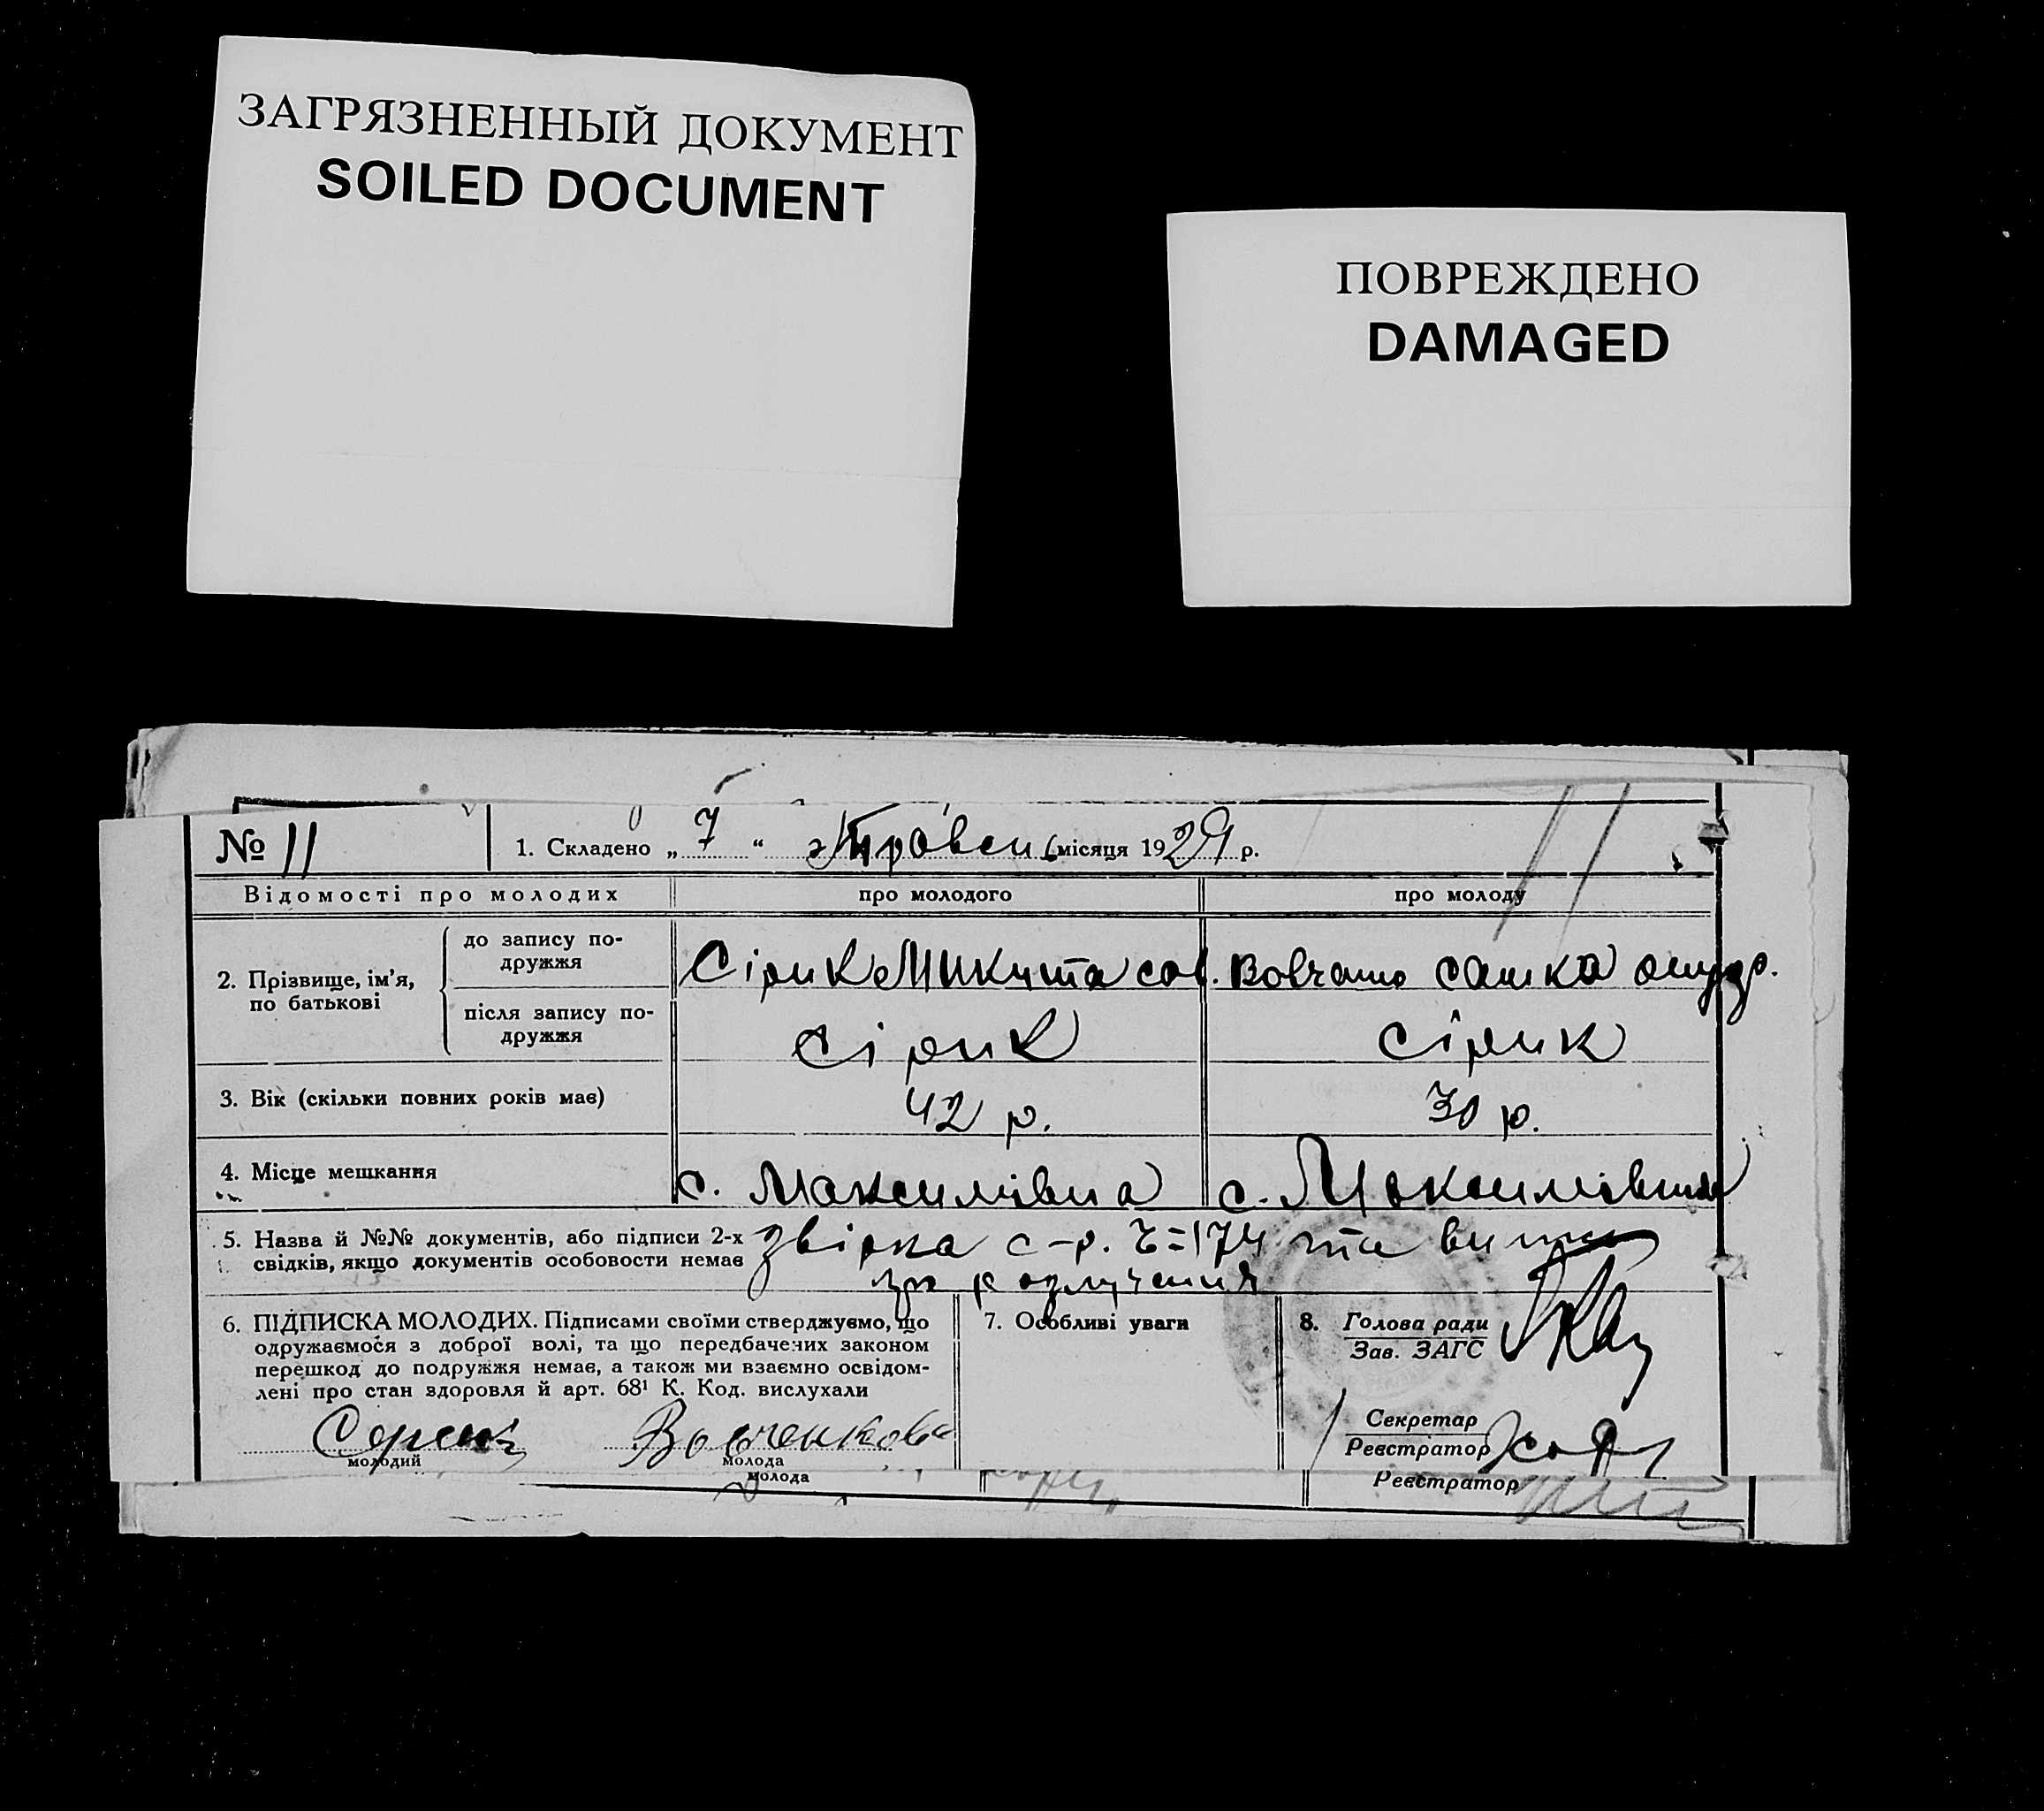 ЗАГРЯЗНЕННЫЙ ДОКУМЕНТ
SOILED DOCUMENT
ПОВРЕЖДЕНО
DAMAGED
№ 11
1. Складено „ 7 “ Травень місяця 1929 р.
Відомості про молодих
про молодого
про молоду
2. Прізвище, ім’я,
по батькові
до запису по-
дружжя
Сірик Микита сав.
сашка
після запису по-
дружжя
Сірик
Сірик
3. Вік (скільки повних років має)
42 р.
30 р.
4. Місце мешкання
с. Максимівка
с. Максимівка
5. Назва й №№ документів, або підписи 2-х
свідків, якщо документів особовости немає
Звірка с-р. 174 та
про розлучення
6. ПІДПИСКА МОЛОДИХ. Підписами своїми стверджуємо, що
одружаємося з доброї волі, та що передбачених законом
перешкод до подружжя немає, а також ми взаємно освідом-
лені про стан здоров
ля й арт. 68¹ К. Код. вислухали
молодий
молода
7. Особливі уваги
8. Голова ради
Зав. ЗАГС
Секретар
Реєстратор
молода
Реєстратор